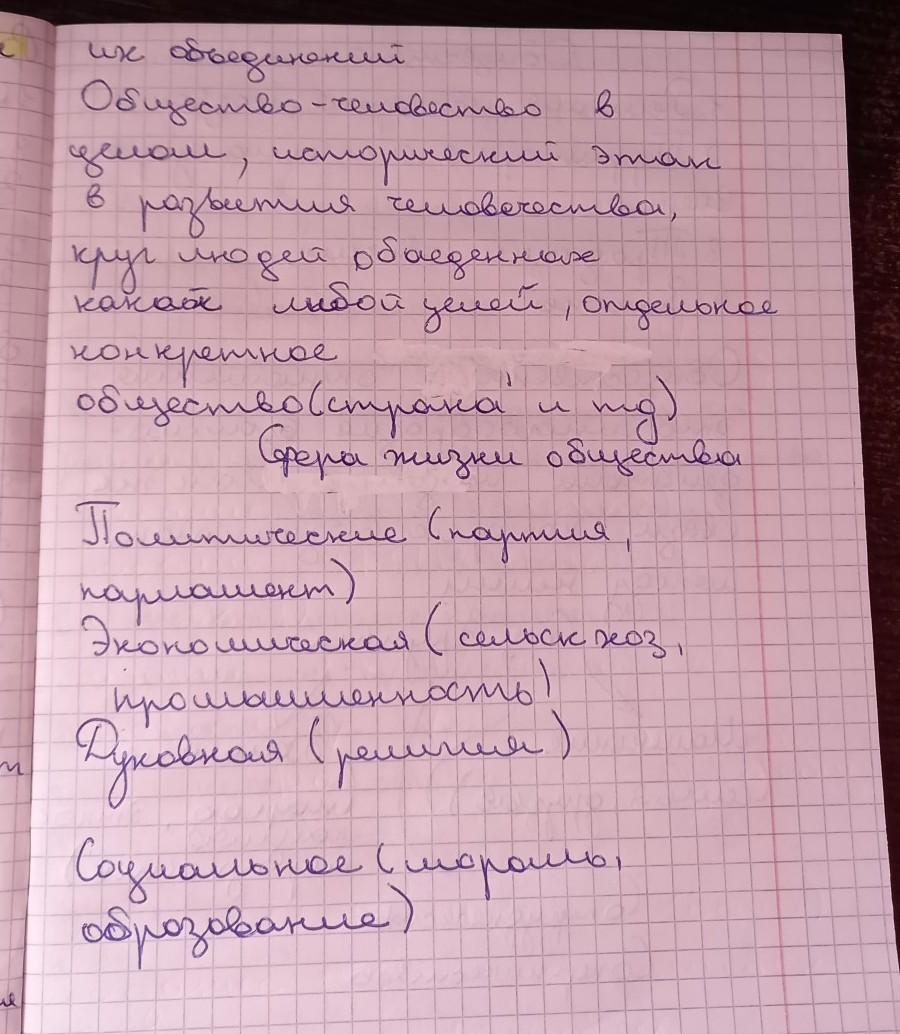 их объединений
Общество-человество в
целом, исторический этап
в развития человечества,
круг людей объеденных
какой либой целей, отдельное
конкретное
общество(страна и тд)
Сфера жизни общества
Политические (партия,
парламент)
Экономическая (сельск хоз,
промышленность)
Духовная (религия)
Социальное (мораль,
оброзование)